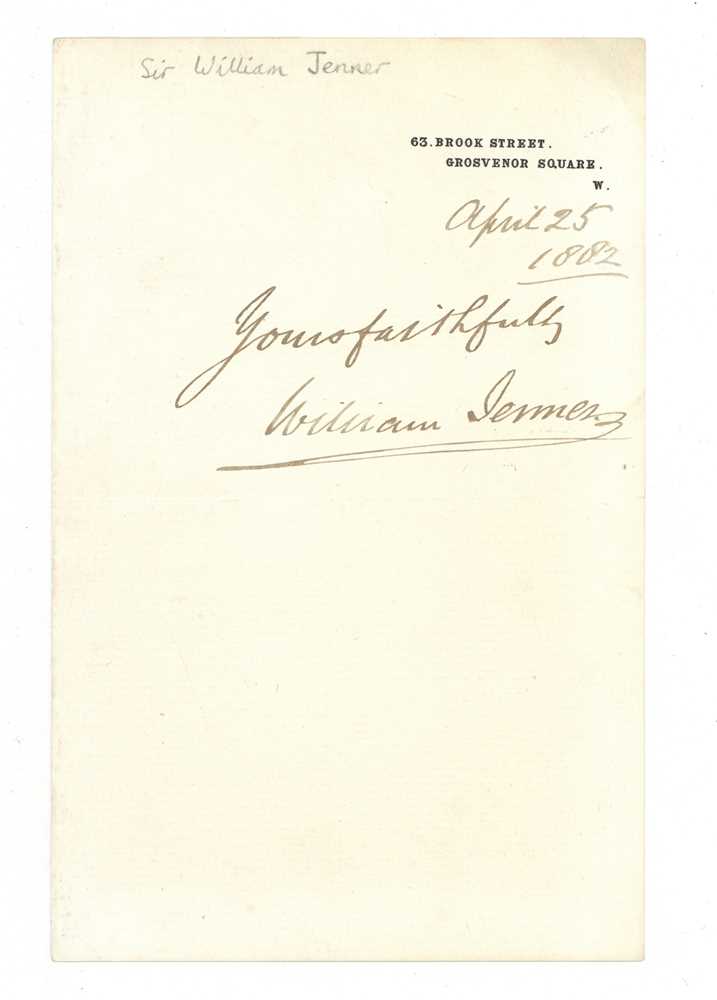 Sir William Jenner
63. BROOK STREET.
GROSVENOR SQUARE.
W.
April 25
1882
Yours faithfully
William Jenner